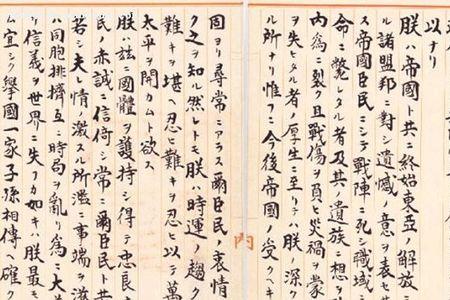 以ナリ
朕ハ帝國ト共ニ終始東亞ノ解放ニ
ル諸盟邦ニ對シ遺憾ノ意ヲ表セサ
ス帝國臣民ニシテ戰陣ニ死シ職域ニ
命ニ斃レタル者及其ノ遺族ニ想ヲ
内爲ニ裂ク且戰傷ヲ負ヒ災禍ヲ蒙
ヲ失ヒタル者ノ厚生ニ至リテハ朕ノ深
ル所ナリ惟フニ今後帝國ノ受クヘキ
内
固ヨリ尋常ニアラス爾臣民ノ衷情
ク之ヲ知ル然レトモ朕ハ時運ノ趨ク
難キヲ堪ヘ忍ヒ難キヲ忍ヒ以テ萬
太平ヲ開カムト欲ス
朕ハ茲ニ國體ヲ護持シ得テ忠良
民ノ赤誠ニ信倚シ常ニ爾臣民ト共
若シ夫レ情ノ激スル所濫ニ事端ヲ滋
ハ同胞排擠互ニ時局ヲ亂リ爲ニ大
リ信義ヲ世界ニ失フカ如キハ朕最モ
ム宜シク擧國一家子孫相傳ヘ確ク